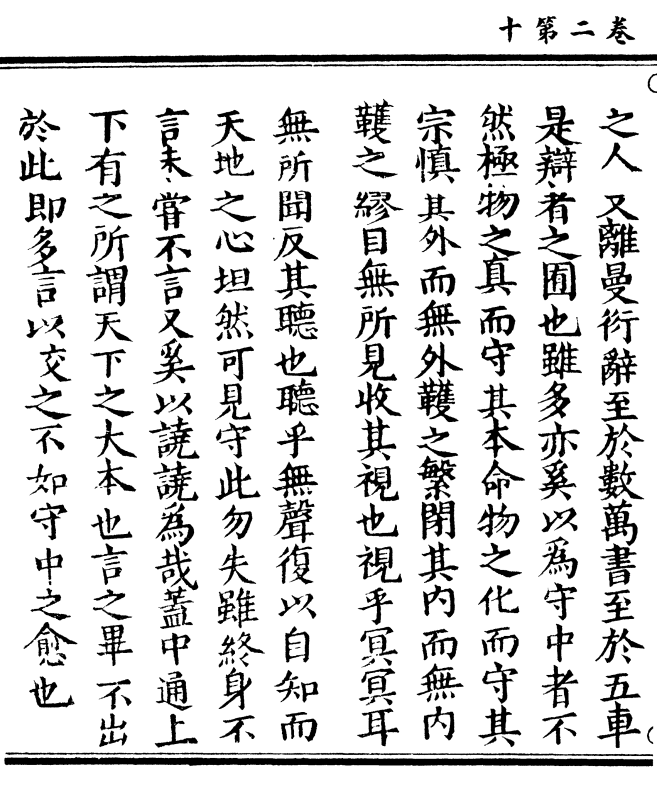 十第二卷
之人又離曼衍辭至於數萬書至於五車
是辯者之囿也雖多亦奚以為守中者不
然極物之真而守其本命物之化而守其
宗慎其外而無外韄之繁閉其内而無内
韄之繆目無所見收其視也視乎冥冥耳
無所聞反其聽也聽乎無聲復以自知而
天地之心坦然可見守此勿失雖終身不
言未嘗不言又奚以譊譊為哉蓋中通上
下有之所謂天下之大本也言之畢不出
於此即多言以交之不如守中之愈也